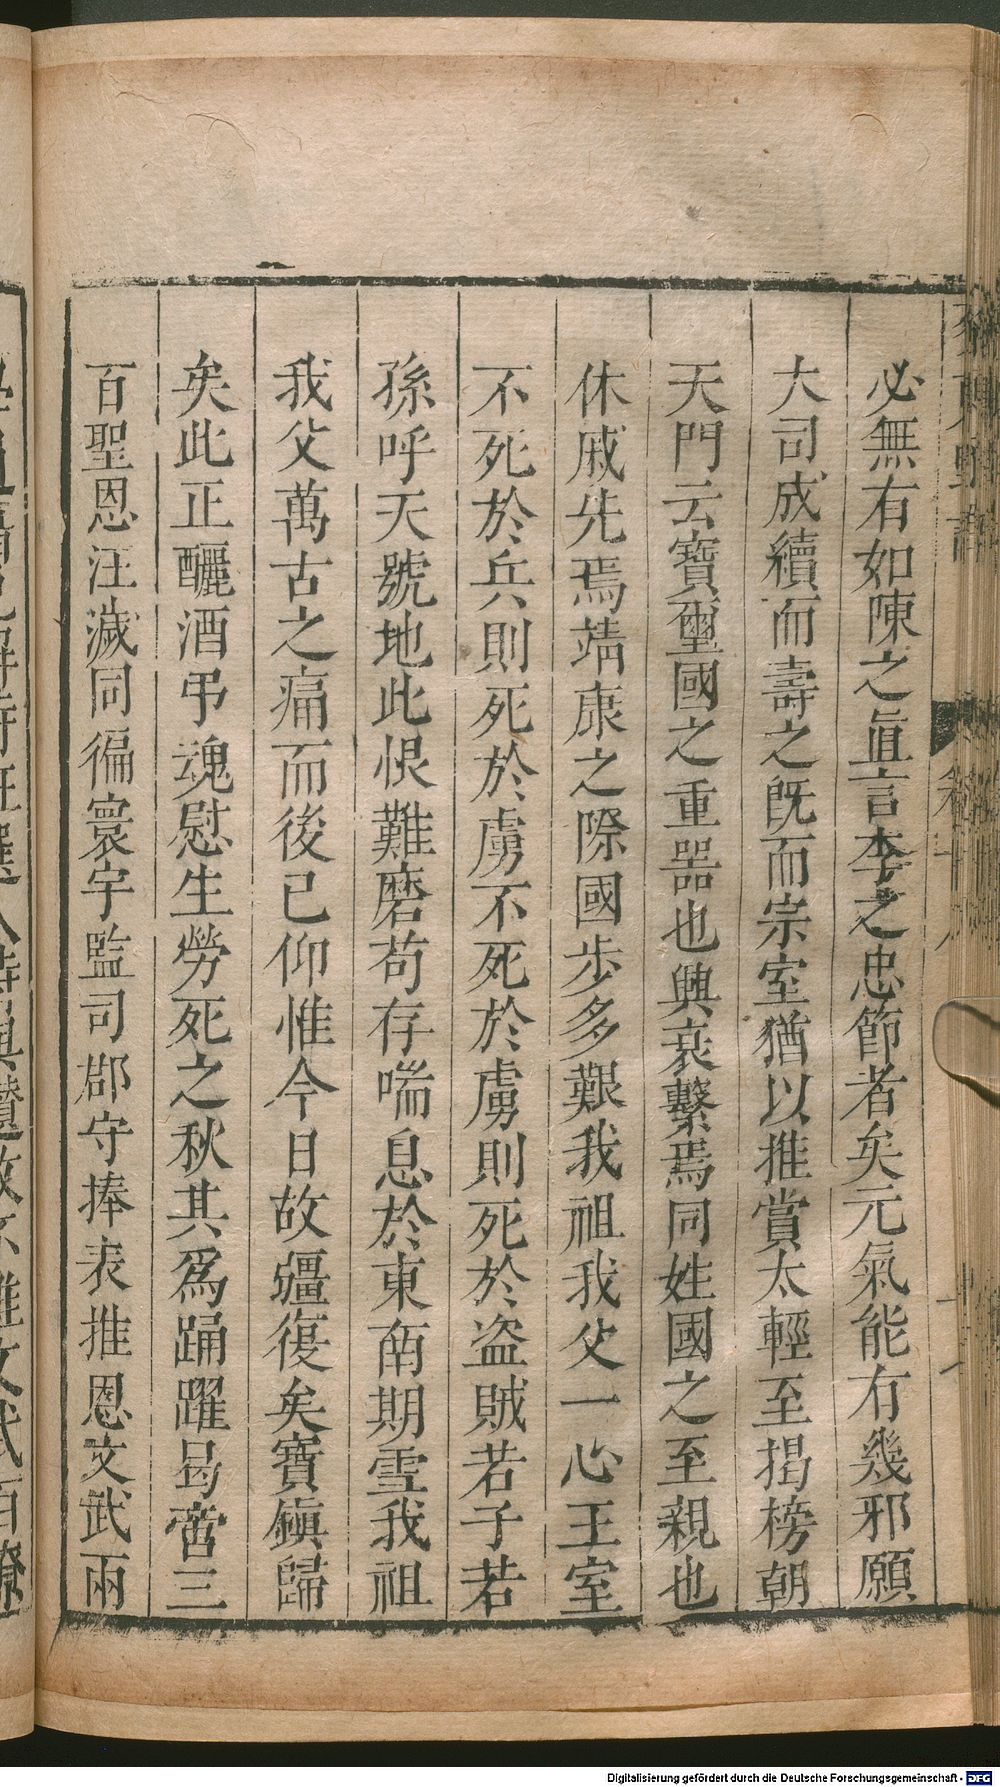 必無有如陳之眞言李之忠節者矣元氣能有幾邪願
大司成續而壽之旣而宗室猶以推賞太輕至揭榜朝
天門云寶璽國之重器也興衰繫焉同姓國之至親也
休戚先焉靖康之際國步多艱我祖我父一心王室
不死於兵則死於虜不死於虜則死於盜賊若子若
孫呼天號地此恨難磨苟存喘息於東南期雪我祖
我父萬古之痛而後已仰惟今日故疆復矣寶鎭歸
矣此正釃酒弔魂慰生勞死之秋其爲踊躍曷啻三
百聖恩汪濊同徧寰宇監司郡守捧表推恩文武兩
Digitalisierung gefördert durch die Deutsche Forschungsgemeinschaft - DFG